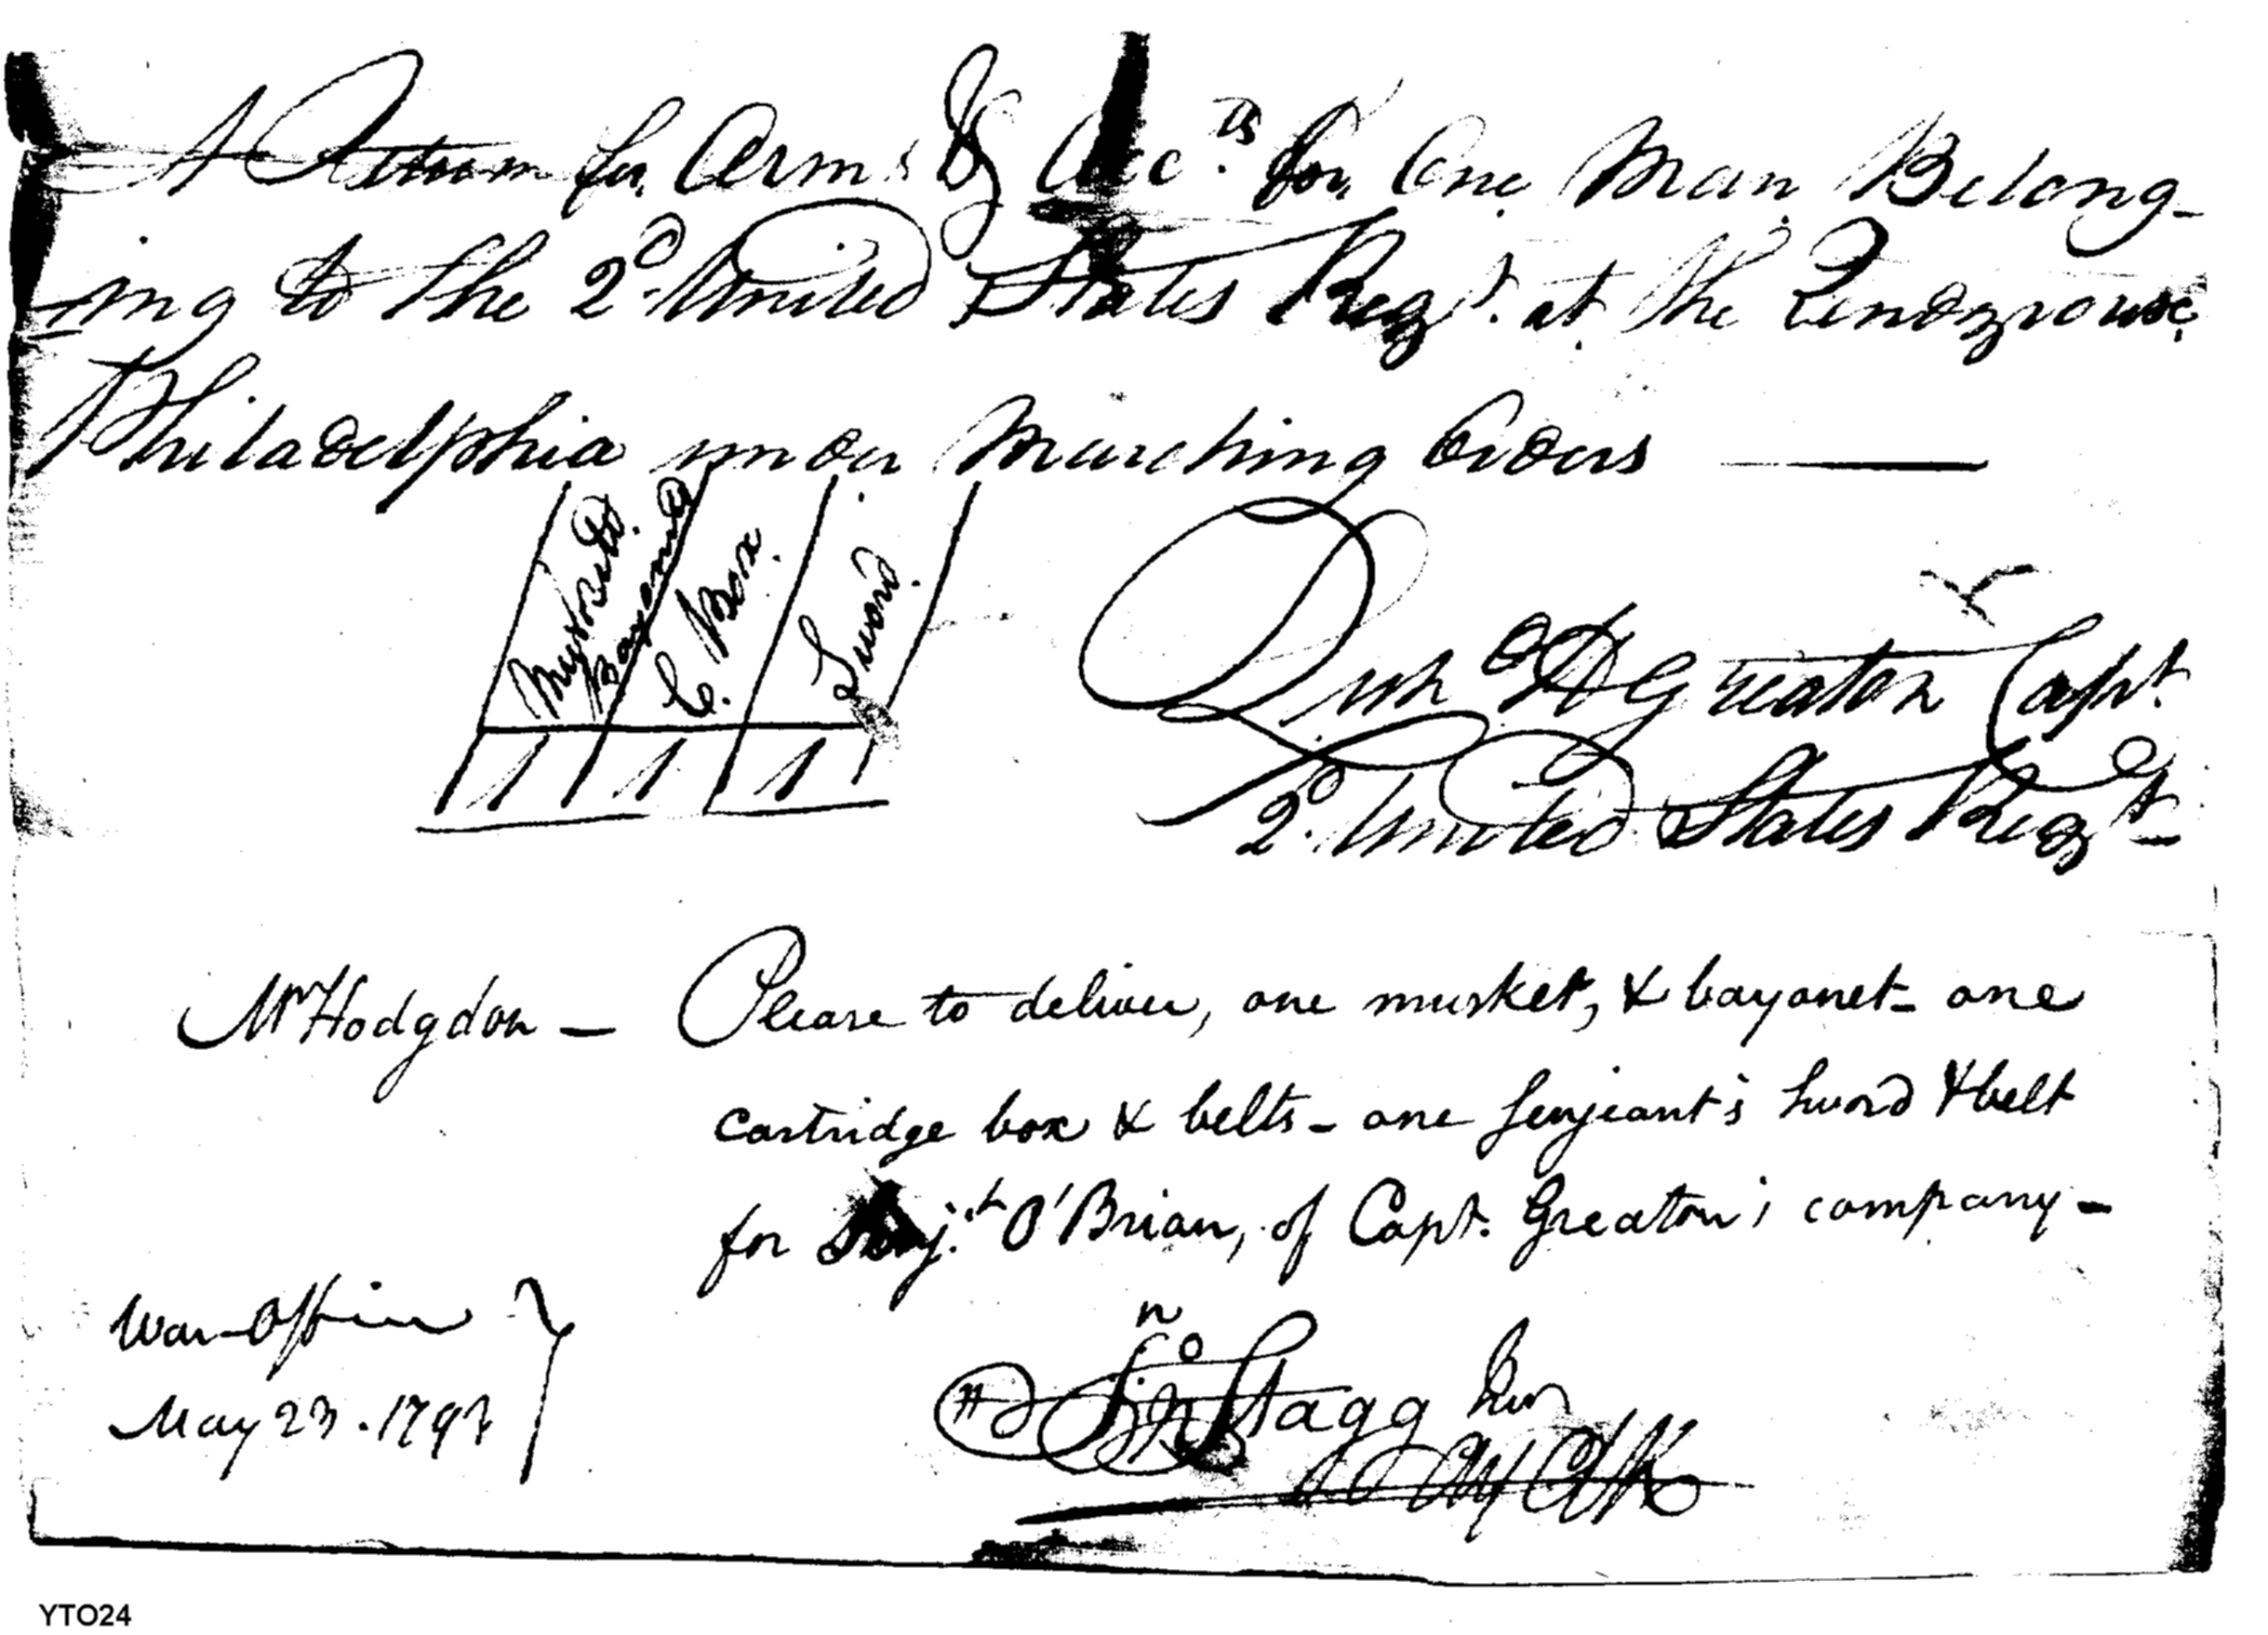 A Return for Arms & Acc.ts for One Man Belong-
ing to the 2d United States Regt. at the Rendezvouse
Philadelphia under Marching Orders
Muskett. Bayonet C. Box. Sword.
1 1 1
Richd H Greaton Capt.
2d. United States Regt
Mr Hodgdon — Please to deliver, one musket, & bayonet - one
cartridge box & belts - one serjeant's sword & belt
for Serj.t O'Brian, of Capt. Greaton's company -
War-Office
May 23. 1792
Jno Stagg Junr
Ch Clk
YTO24